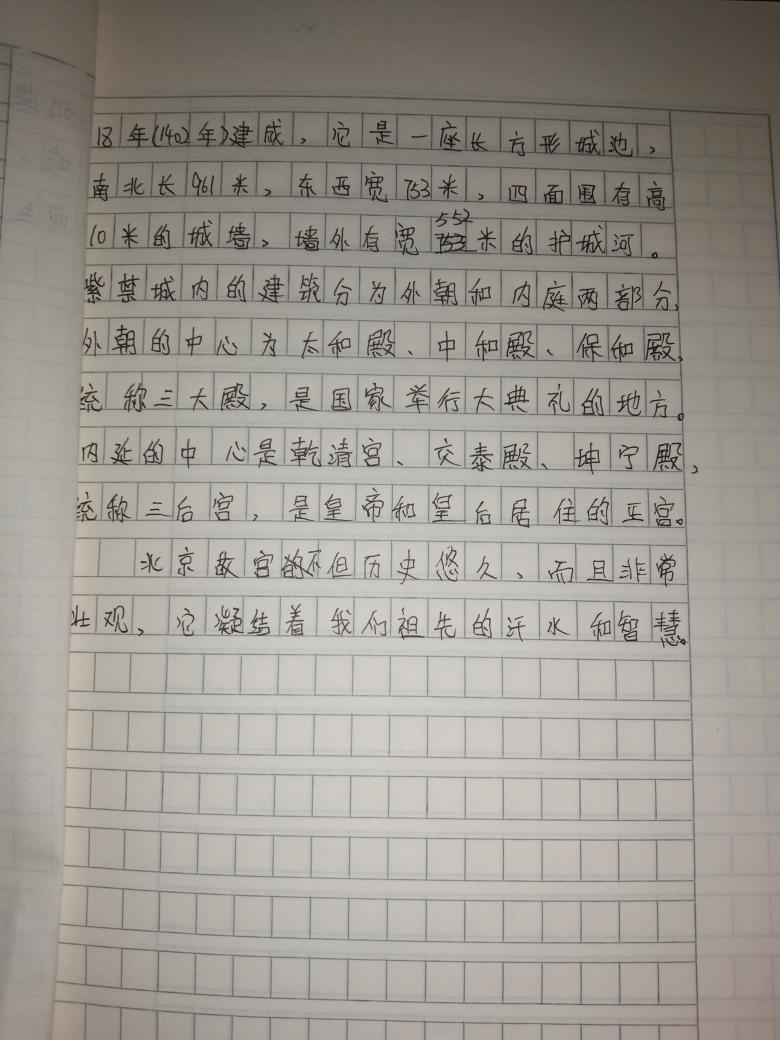 18年(1402年)建成，它是一座长方形城池，
南北长961米，东西宽753米，四面围有高
10米的城墙，墙外有宽552米的护城河。
紫禁城内的建筑分为外朝和内庭两部分，
外朝的中心为太和殿、中和殿、保和殿，
统称三大殿，是国家举行大典礼的地方。
内延的中心是乾清宫、交泰殿、坤宁殿，
统称三后宫，是皇帝和皇后居住的正宫。
北京故宫不但历史悠久，而且非常
壮观，它凝结着我们祖先的汗水和智慧。